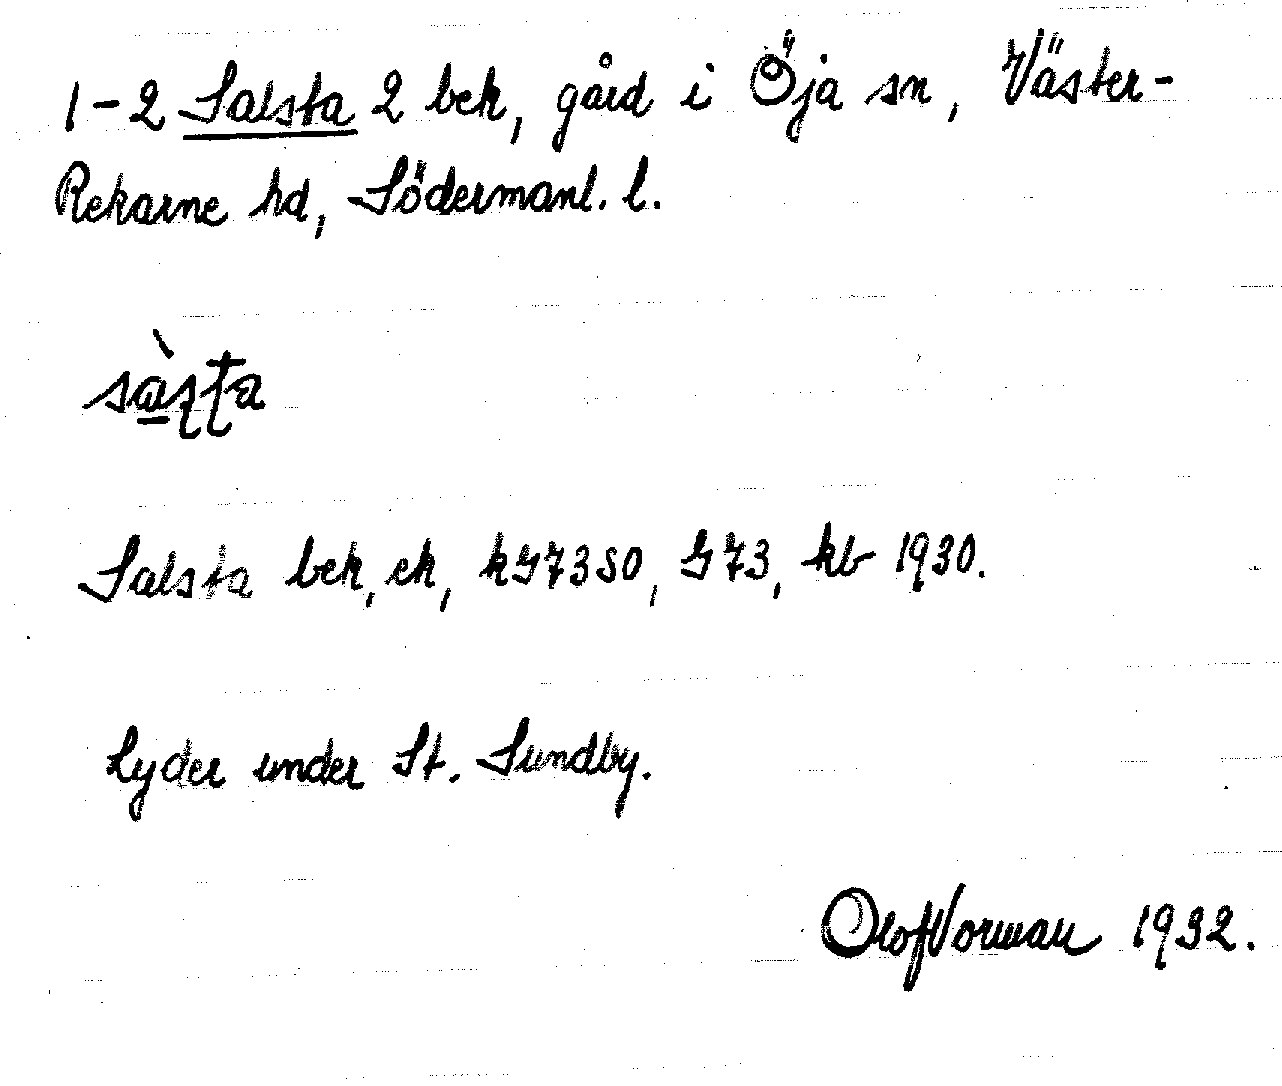 1-2 Salsta 2 bek, gård i Öja sn, Väster-
Rekarne hd, Södermanl. l.
sàʂʈa
Salsta bek, ek, kG73SO, G73, kb 1930.
Lyder under St. Sundby.
Olof Vorman 1932.